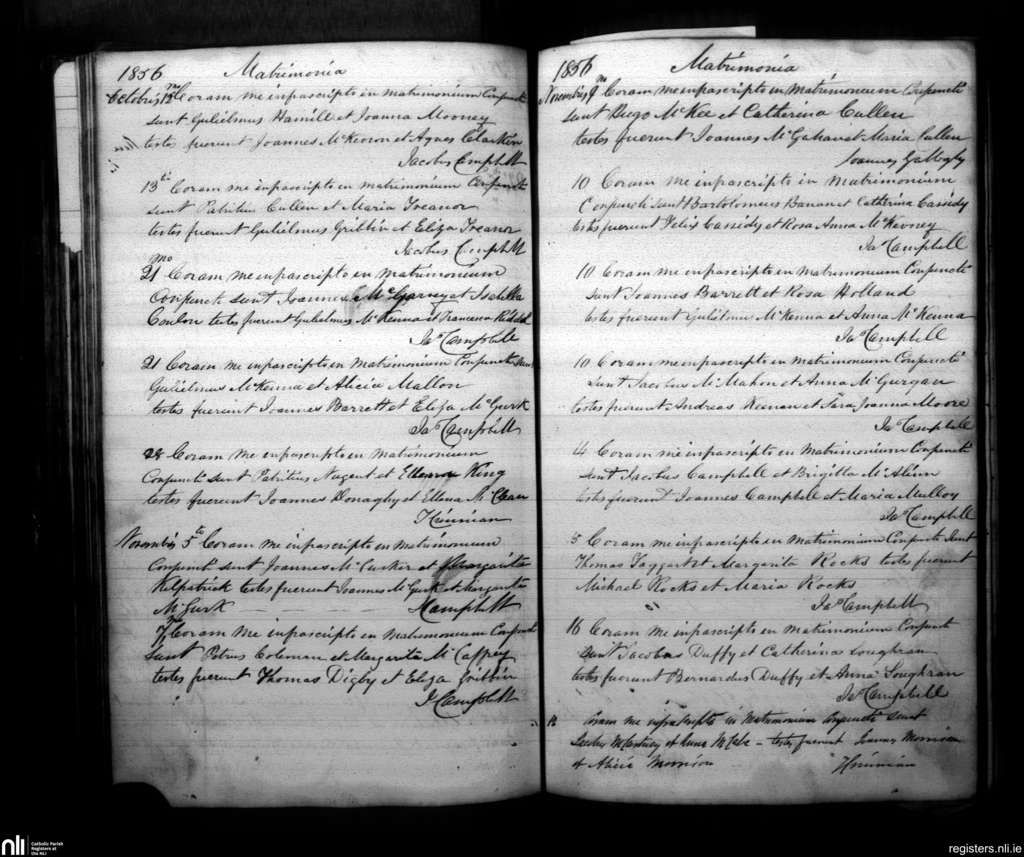 1856 Matrimonia
Octobris 13 Coram me infrascripto in matrimonium Conjuncti
sunt Gulielmus Hamill et Joanna Mooney
testes fuerunt Joannes McKeown et Agnes Clarkin
Jacobus Campbell
13th Coram me infrascripto in matrimonium Conjuncti
sunt Patritius Cullen et Maria Treanor
testes fuerunt Gulielmus Gribbin et Eliza Treanor
Jacobus Campbell
21 Coram me infrascripto in matrimonium
Conjuncti sunt Joannes McGarvey et Isabella
Conlon testes fuerunt Gulielmus McKenna et Francesca
Jas Campbell
21 Coram me infrascripto in matrimonium Conjuncti sunt
Gulielmus McKenna et Alicia Mallon
testes fuerunt Joannes Barrett et Eliza McGurk
Jas Campbell
28 Coram me infrascripto in matrimonium
Conjuncti sunt Patritius Nugent et Ellena King
testes fuerunt Joannes Donaghy et Ellena McClean
Novembris 5th Coram me infrascripto in matrimonium
Conjuncti sunt Joannes McCusker et Margarita
Kilpatrick testes fuerunt Joannes McGurk et Margarita
McGurk Campbell
7 Coram me infrascripto in matrimonium Conjuncti
sunt Petrus Coleman et Margarita McCaffrey
testes fuerunt Thomas Digby et Eliza Gribbin
J Campbell
1856 Matrimonia
Novembris 9 Coram me infrascripto in matrimonium Conjuncti
sunt Hugo McKee et Catherina Cullen
testes fuerunt Joannes McGahan et Maria Cullen
Joannes Gallogly
10 Coram me infrascripto in matrimonium
Conjuncti sunt Bartolomeus Banan et Catherina Cassidy
testes fuerunt Felix Cassidy et Rosa Anna McKevney
Jas Campbell
10 Coram me infrascripto in matrimonium Conjuncti
sunt Joannes Barrett et Rosa Holland
testes fuerunt Gulielmus McKenna et Anna McKenna
Jas Campbell
10 Coram me infrascripto in matrimonium Conjuncti
sunt Jacobus McMahon et Anna McGurgan
testes fuerunt Andreas Keenan et Sara Joanna Moore
Jas Campbell
14 Coram me infrascripto in matrimonium Conjuncti
sunt Jacobus Campbell et Brigitta McAlinn
testes fuerunt Joannes Campbell et Maria Mulloy
Jas Campbell
5 Coram me infrascripto in matrimonium Conjuncti sunt
Thomas Taggart et Margarita Rocks testes fuerunt
Michael Rocks et Maria Rocks
Jas Campbell
16 Coram me infrascripto in matrimonium Conjuncti
sunt Jacobus Duffy et Catherina Loughran
testes fuerunt Bernardus Duffy et Anna Loughran
Jas Campbell
Coram me infrascripto in matrimonium Conjuncti sunt
McCartney et Anna McCabe – testes fuerunt Joannes Morrison
et Alicia Morrison
nli
Catholic Parish
Registers at
the NLI
registers.nli.ie